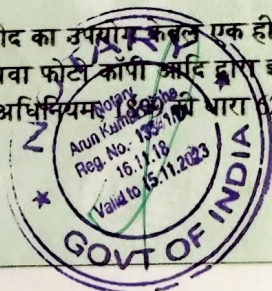 का उपयोग केवल एक ही
फोटो कॉपी आदि द्वारा
अधिनियम, की धारा
NOTARY
Notary
Arun Kumar
Reg. No.-
16.11.18
Valid to 15.11.2023
GOVT OF INDIA